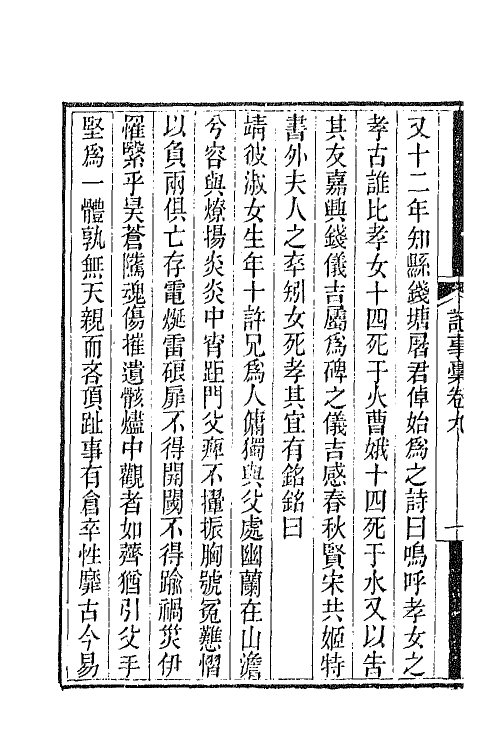 又十二年知縣錢塘屠君倬始爲之詩曰嗚呼孝女之
孝古誰比孝女十四死于火曹娥十四死于水又以告
其友嘉興錢儀吉屬爲碑之儀吉感春秋賢宋共姬特
書外夫人之卒矧女死孝其宜有銘銘曰
靖彼淑女生年十許兄爲人傭獨與父處幽蘭在山澹
兮容與燎揚炎炎中宵距門父痺不攉振胸號冤戁慴
以負兩俱亡存電烻雷硠扉不得開閾不得踰禍烖伊
罹繄乎昊蒼隲魂傷摧遺骸燼中觀者如薺猶引父手
堅爲一體孰無天親而吝頂趾事有倉卒性靡古今易
記事稾卷九
一